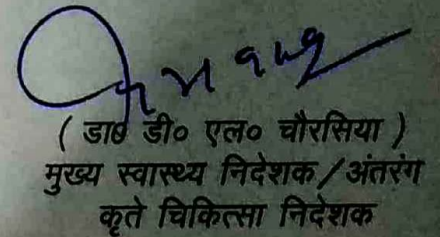 ( डा० डी० एल० चौरसिया )
मुख्य स्वास्थ्य निदेशक/अंतरंग
कृते चिकित्सा निदेशक